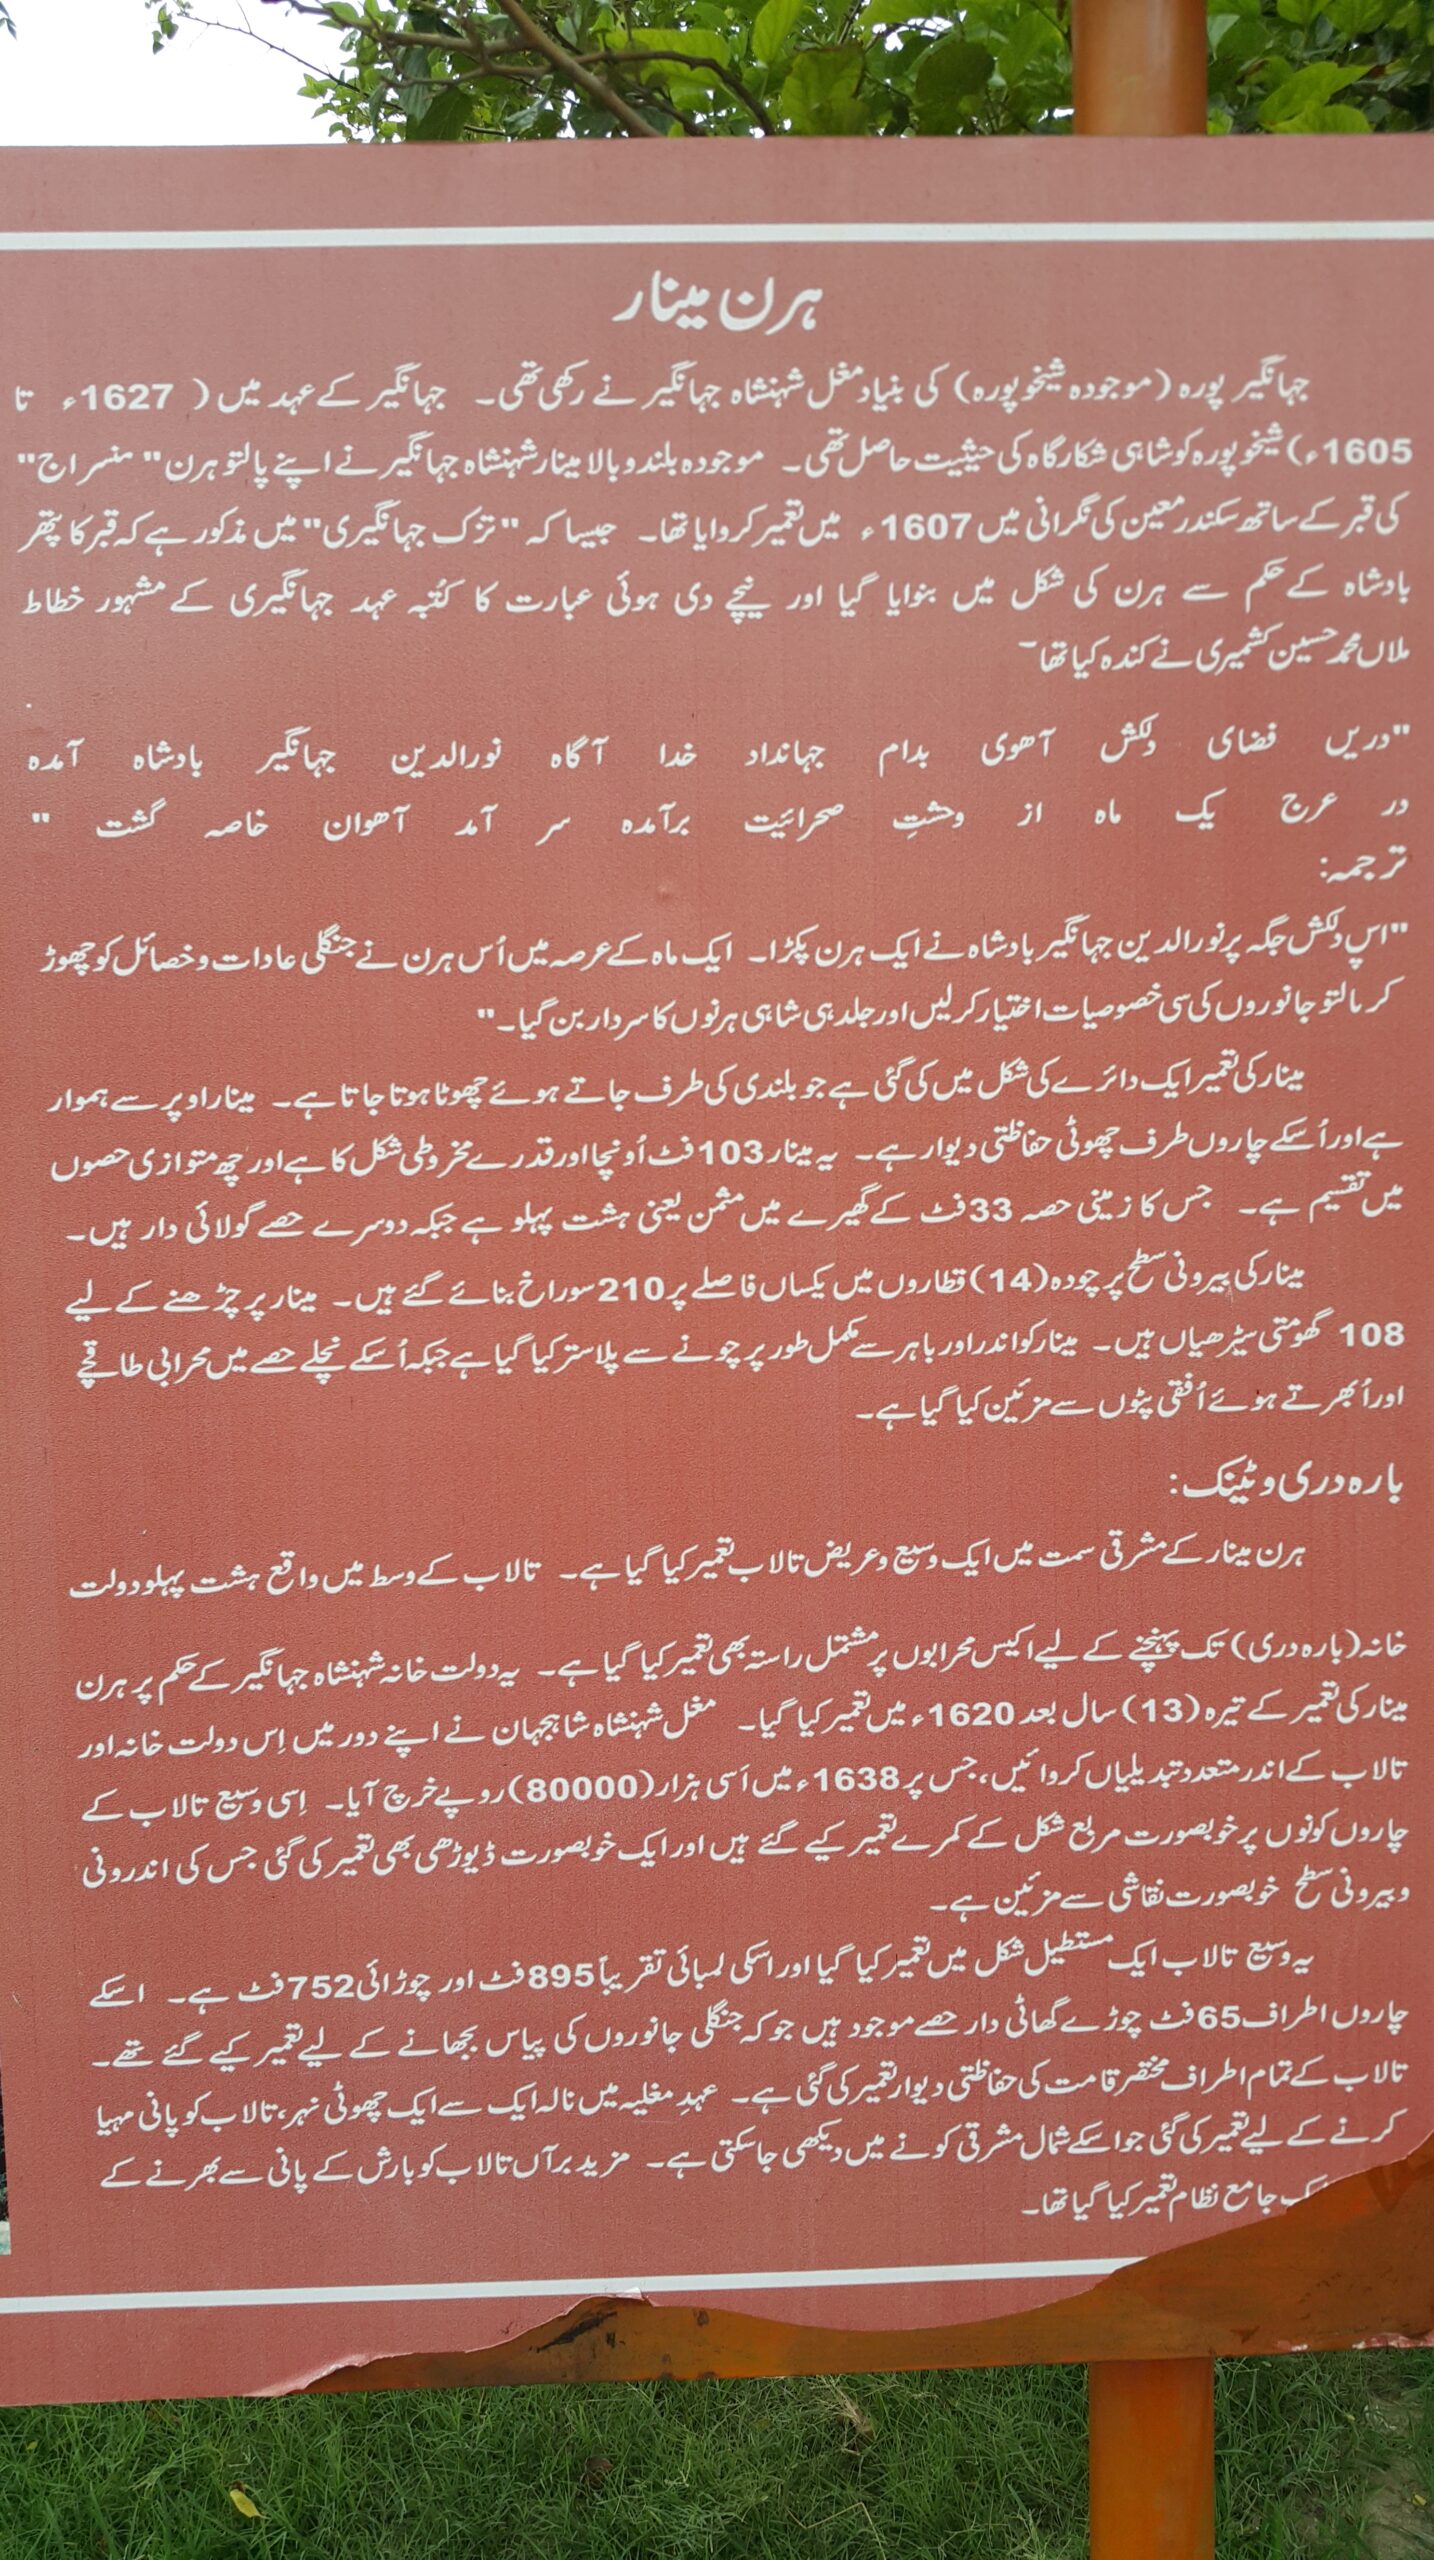 ہرن مینار
جہانگیر پورہ (موجودہ شیخوپورہ) کی بنیاد مغل شہنشاہ جہانگیر نے رکھی تھی۔ جہانگیر کے عہد میں ( 1627ء تا
1605ء) شیخوپورہ کو شاہی شکارگاہ کی حیثیت حاصل تھی۔ موجودہ بلند و بالا مینار شہنشاہ جہانگیر نے اپنے پالتو ہرن "منسراج"
کی قبر کے ساتھ سکندر معین کی نگرانی میں 1607ء میں تعمیر کروایا تھا۔ جیسا کہ "تزک جہانگیری" میں مذکور ہے کہ قبر کا پتھر
بادشاہ کے حکم سے ہرن کی شکل میں بنوایا گیا اور نیچے دی ہوئی عبارت کا کُتبہ عہد جہانگیری کے مشہور خطاط
ملاں محمد حسین کشمیری نے کندہ کیا تھا۔
"دریں فضای دلکش آھوی بدام جہانداد خدا آگاہ نورالدین جہانگیر بادشاہ آمدہ
در عرج یک ماہ از وحشتِ صحرائیت برآمدہ سر آمد آھوان خاصہ گشت "
ترجمہ:
"اس دلکش جگہ پر نورالدین جہانگیر بادشاہ نے ایک ہرن پکڑا۔ ایک ماہ کے عرصہ میں اُس ہرن نے جنگلی عادات و خصائل کو چھوڑ
کر مالتو جانوروں کی سی خصوصیات اختیار کر لیں اور جلد ہی شاہی ہرنوں کا سردار بن گیا۔"
مینار کی تعمیر ایک دائرے کی شکل میں کی گئی ہے جو بلندی کی طرف جاتے ہوئے چھوٹا ہوتا جاتا ہے۔ مینار اوپر سے ہموار
ہے اور اُسکے چاروں طرف چھوٹی حفاظتی دیوار ہے۔ یہ مینار 103 فٹ اُونچا اور قدرے مخروطی شکل کا ہے اور چھ متوازی حصوں
میں تقسیم ہے۔ جس کا زمینی حصہ 33 فٹ کے گھیرے میں مثمن یعنی ہشت پہلو ہے جبکہ دوسرے حصے گولائی دار ہیں۔
مینار کی بیرونی سطح پر چودہ (14) قطاروں میں یکساں فاصلے پر 210 سوراخ بنائے گئے ہیں۔ مینار پر چڑھنے کے لیے
108 گھومتی سیڑھیاں ہیں۔ مینار کو اندر اور باہر سے مکمل طور پر چونے سے پلاستر کیا گیا ہے جبکہ اُسکے نچلے حصے میں محرابی طاقچے
اور اُبھرتے ہوئے اُفقی پٹوں سے مزئین کیا گیا ہے۔
بارہ دری و ٹینک:
ہرن مینار کے مشرقی سمت میں ایک وسیع و عریض تالاب تعمیر کیا گیا ہے۔ تالاب کے وسط میں واقع ہشت پہلو دولت
خانہ (بارہ دری) تک پہنچنے کے لیے اکیس محرابوں پر مشتمل راستہ بھی تعمیر کیا گیا ہے۔ یہ دولت خانہ شہنشاہ جہانگیر کے حکم پر ہرن
مینار کی تعمیر کے تیرہ (13) سال بعد 1620ء میں تعمیر کیا گیا۔ مغل شہنشاہ شاہجہان نے اپنے دور میں اِس دولت خانہ اور
تالاب کے اندر متعدد تبدیلیاں کروائیں، جس پر 1638ء میں اَسی ہزار (80000) روپے خرچ آیا۔ اِسی وسیع تالاب کے
چاروں کونوں پر خوبصورت مربع شکل کے کمرے تعمیر کیے گئے ہیں اور ایک خوبصورت ڈیوڑھی بھی تعمیر کی گئی جس کی اندرونی
و بیرونی سطح خوبصورت نقاشی سے مزئین ہے۔
یہ وسیع تالاب ایک مستطیل شکل میں تعمیر کیا گیا اور اسکی لمبائی تقریباً 895 فٹ اور چوڑائی 752 فٹ ہے۔ اسکے
چاروں اطراف 65 فٹ چوڑے گھاٹی دار حصے موجود ہیں جو کہ جنگلی جانوروں کی پیاس بجھانے کے لیے تعمیر کیے گئے تھے۔
تالاب کے تمام اطراف مختصر قامت کی حفاظتی دیوار تعمیر کی گئی ہے۔ عہدِ مغلیہ میں نالہ ایک سے ایک چھوٹی نہر، تالاب کو پانی مہیا
کرنے کے لیے تعمیر کی گئی جو اسکے شمال مشرقی کونے میں دیکھی جاسکتی ہے۔ مزید برآں تالاب کو بارش کے پانی سے بھرنے کے
جامع نظام تعمیر کیا گیا تھا۔